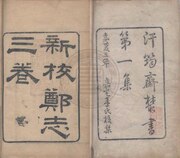 汗筠齋叢書
第一集
新校鄭志
三卷